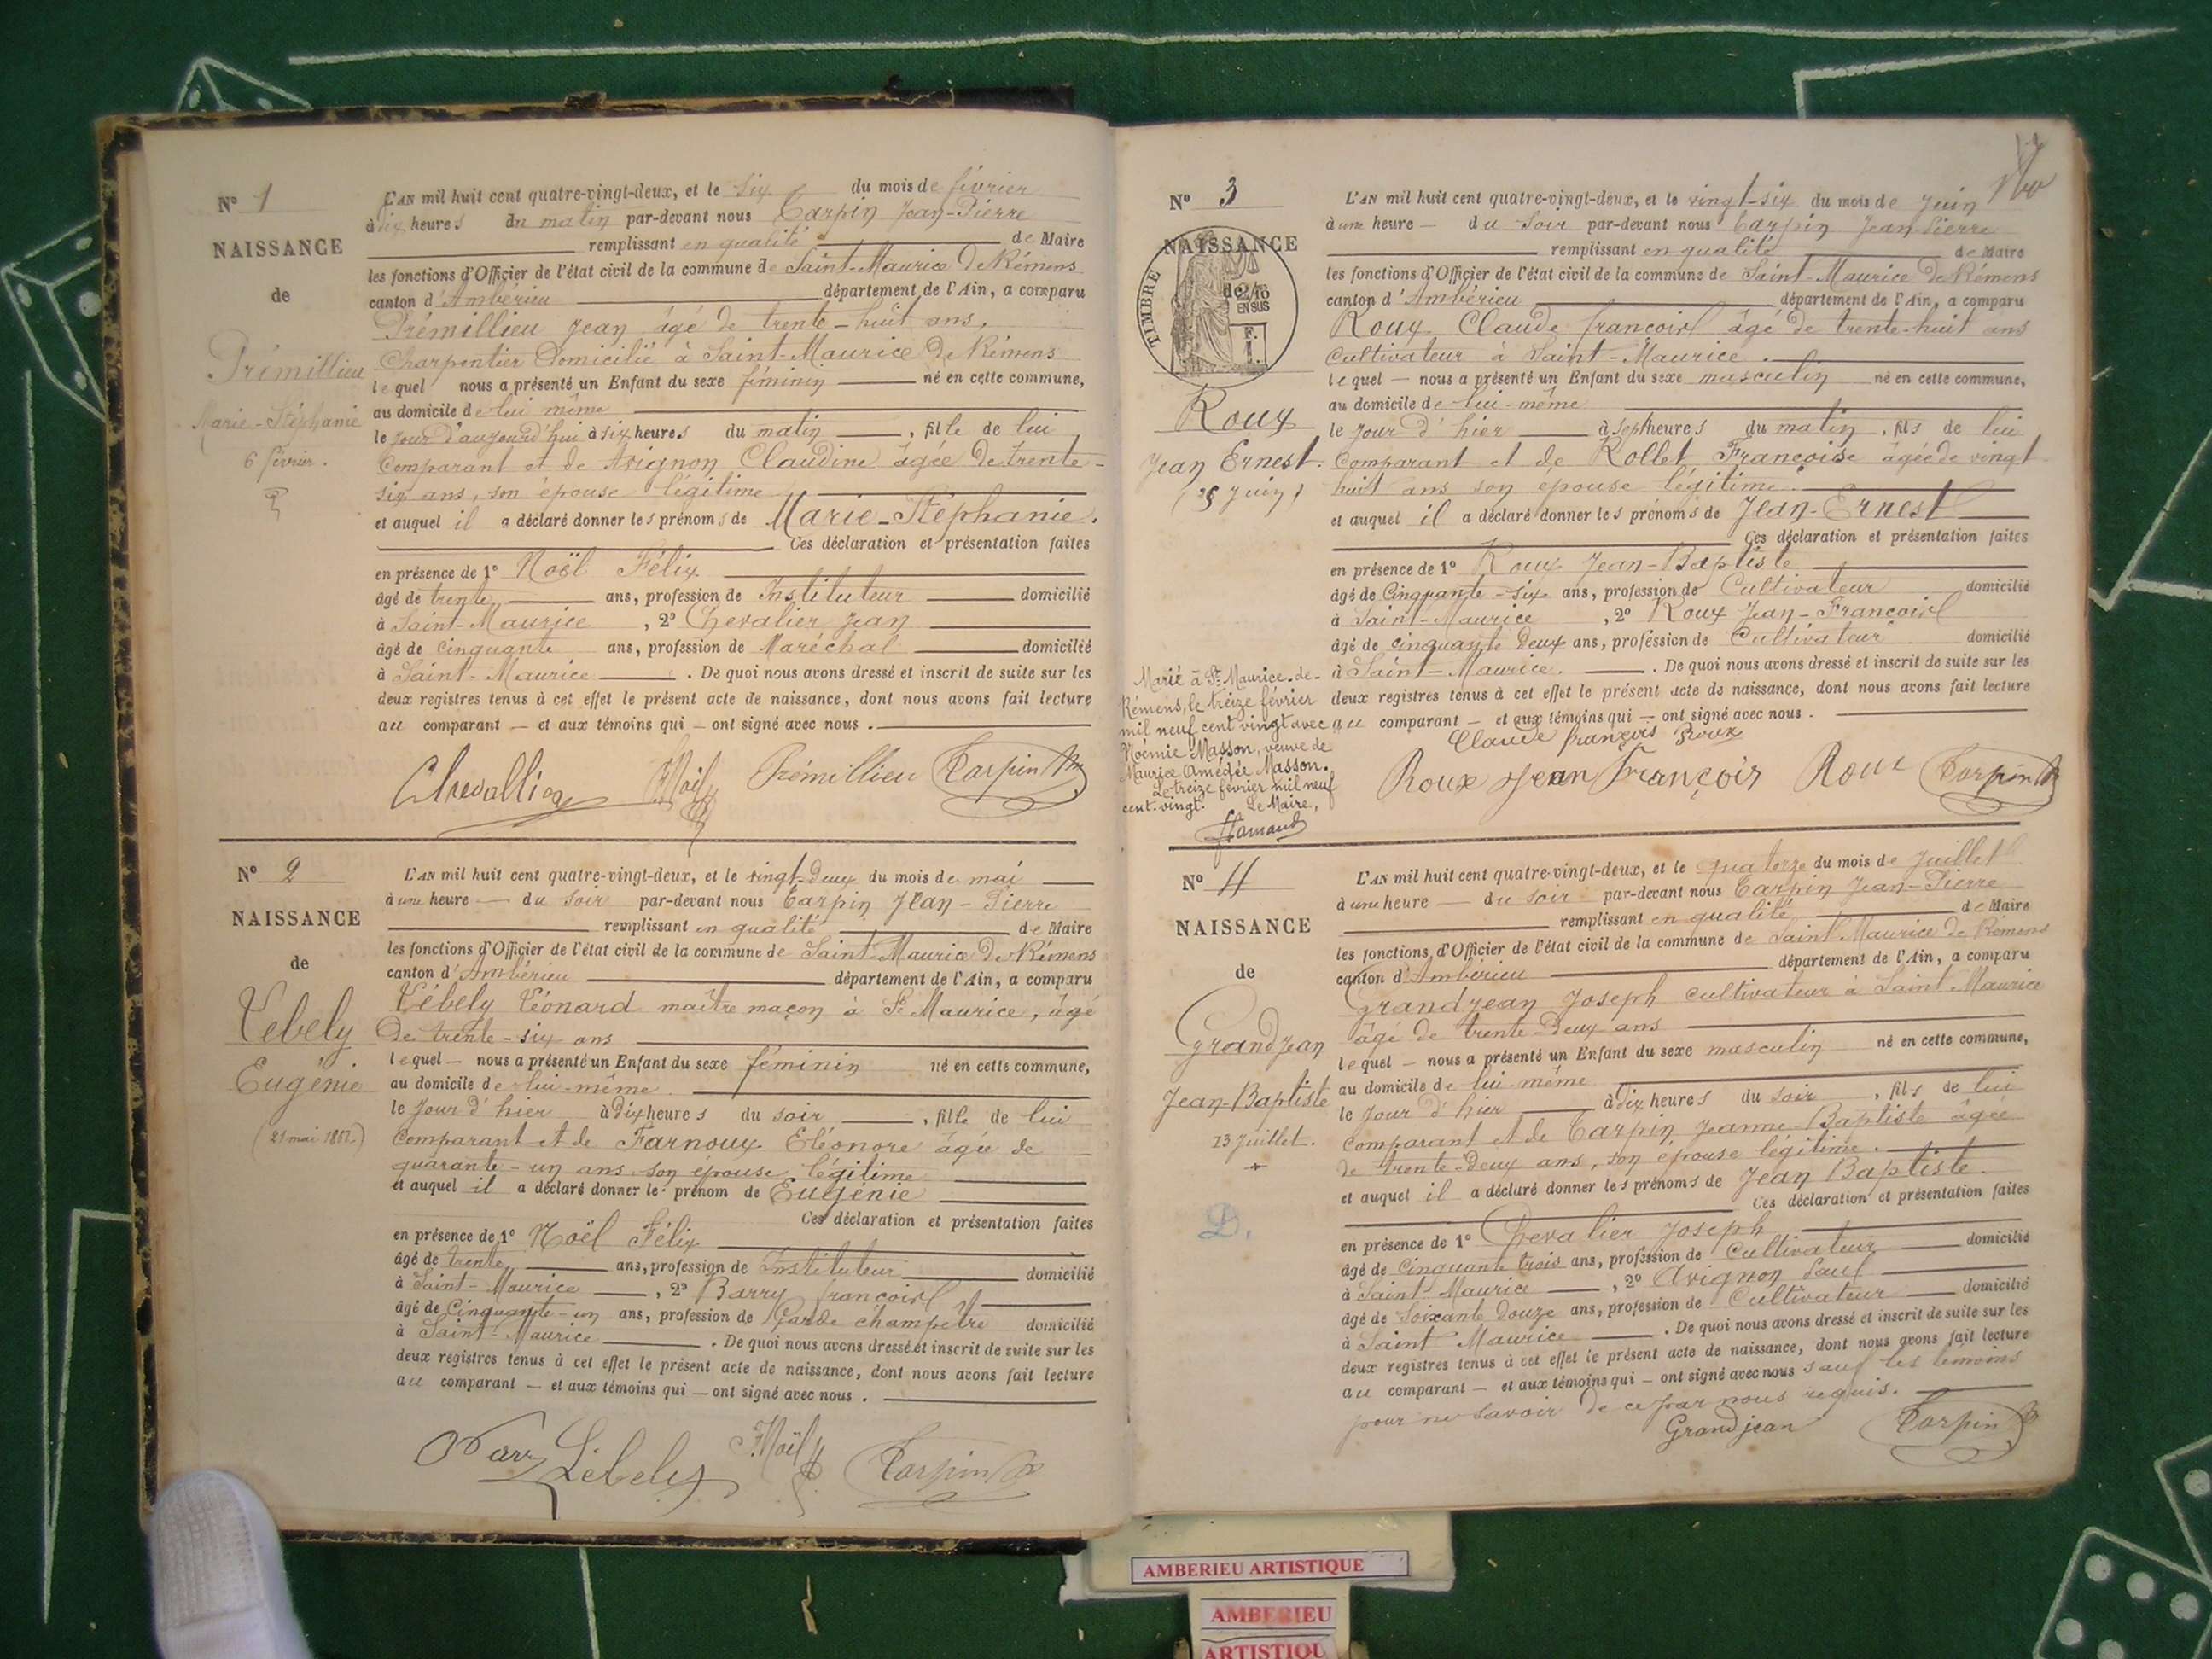 N° 1
NAISSANCE
de
Prémillieu
Marie-Stéphanie
6 février.
L'AN mil huit cent quatre-vingt-deux, et le six du mois de février
à dix heures du matin par-devant nous Carpin Jean-Pierre
remplissant en qualité de Maire
les fonctions d'Officier de l'état civil de la commune de Saint-Maurice De Rémens
canton d'Ambérieu département de l'Ain, a comparu
Prémillieu Jean âgé de trente-huit ans,
Charpentier Domicilié à Saint-Maurice De Rémens
lequel nous a présenté un Enfant du sexe féminin né en cette commune,
au domicile de lui même
le jour d'aujourd'hui à six heures du matin , fille de lui
Comparant et de Avignon Claudine âgée de trente-
six ans, son épouse légitime
et auquel il a déclaré donner les prénoms de Marie-Stéphanie.
Ces déclaration et présentation faites
en présence de 1° Noël Félix
âgé de trente ans, profession de Instituteur domicilié
à Saint-Maurice , 2° Chevalier Jean
âgé de cinquante ans, profession de Maréchal domicilié
à Saint-Maurice . De quoi nous avons dressé et inscrit de suite sur les
deux registres tenus à cet effet le présent acte de naissance, dont nous avons fait lecture
au comparant — et aux témoins qui — ont signé avec nous .
Chevallier Noël Prémillieu Carpin
N° 2
NAISSANCE
de
Lébely
Eugénie
(21 mai 1882)
L'AN mil huit cent quatre-vingt-deux, et le vingt-deux du mois de mai
à une heure — du soir par-devant nous Carpin Jean-Pierre
remplissant en qualité de Maire
les fonctions d'Officier de l'état civil de la commune de Saint-Maurice De Rémens
canton d'Ambérieu département de l'Ain, a comparu
Lébely Léonard maître maçon à St Maurice, âgé
De trente-six ans
lequel — nous a présenté un Enfant du sexe féminin né en cette commune,
au domicile de lui-même
le jour d'hier à dix heures du soir , fille de lui
Comparant et de Farnoux Eléonore âgée de
quarante-un ans son épouse légitime
et auquel il a déclaré donner le prénom de Eugénie
Ces déclaration et présentation faites
en présence de 1° Noël Félix
âgé de trente ans, profession de Instituteur domicilié
à Saint-Maurice , 2° Barry françois
âgé de Cinquante-un ans, profession de Garde champêtre domicilié
à Saint-Maurice . De quoi nous avons dressé et inscrit de suite sur les
deux registres tenus à cet effet le présent acte de naissance, dont nous avons fait lecture
au comparant — et aux témoins qui — ont signé avec nous .
Lébely Noël Carpin
N° 3
NAISSANCE
de
TIMBRE
2/10
EN SUS
Roux
Jean Ernest.
(25 Juin)
Marié à St-Maurice-de-
Rémens, le treize février
mil neuf cent vingt avec
Noémie Masson, veuve de
Maurice Amédée Masson.
Le treize février mil neuf
cent-vingt. Le Maire,
L'AN mil huit cent quatre-vingt-deux, et le vingt-six du mois de Juin
à une heure — du soir par-devant nous Carpin Jean Pierre
remplissant en qualité de Maire
les fonctions d'Officier de l'état civil de la commune de Saint-Maurice De Rémens
canton d'Ambérieu département de l'Ain, a comparu
Roux Claude françois âgé de trente-huit ans
Cultivateur à Saint-Maurice .
lequel — nous a présenté un Enfant du sexe masculin né en cette commune,
au domicile de lui-même
le jour d'hier à sept heures du matin , fils de lui
Comparant et de Rollet Françoise âgée de vingt
huit ans son épouse légitime.
et auquel il a déclaré donner les prénoms de Jean-Ernest
Ces déclaration et présentation faites
en présence de 1° Roux Jean-Baptiste
âgé de Cinquante-six ans, profession de Cultivateur domicilié
à Saint-Maurice , 2° Roux Jean-François
âgé de cinquante deux ans, profession de Cultivateur domicilié
à Saint-Maurice. . De quoi nous avons dressé et inscrit de suite sur les
deux registres tenus à cet effet le présent acte de naissance, dont nous avons fait lecture
au comparant — et aux témoins qui — ont signé avec nous .
Claude françois Roux
Roux Jean François Roux Carpin
N° 4
NAISSANCE
de
Grandjean
Jean-Baptiste
13 Juillet.
D.
L'AN mil huit cent quatre-vingt-deux, et le quatorze du mois de Juillet
à une heure — du soir par-devant nous Carpin Jean-Pierre
remplissant en qualité de Maire
les fonctions d'Officier de l'état civil de la commune de Saint Maurice de Rémens
canton d'Ambérieu département de l'Ain, a comparu
Grandjean Joseph cultivateur à Saint-Maurice
âgé de trente-Deux ans
lequel — nous a présenté un Enfant du sexe masculin né en cette commune,
au domicile de lui-même
le jour d'hier à dix heures du soir , fils de lui
comparant et de Carpin Jeanne-Baptiste âgée
de trente-deux ans, son épouse légitime.
et auquel il a déclaré donner les prénoms de Jean Baptiste.
Ces déclaration et présentation faites
en présence de 1° Chevalier Joseph
âgé de Cinquante trois ans, profession de Cultivateur domicilié
à Saint-Maurice , 2° Avignon Paul
âgé de Soixante douze ans, profession de Cultivateur domicilié
à Saint Maurice . De quoi nous avons dressé et inscrit de suite sur les
deux registres tenus à cet effet le présent acte de naissance, dont nous avons fait lecture
au comparant — et aux témoins qui — ont signé avec nous sauf les témoins
pour ne savoir de ce par nous requis.
Grandjean Carpin
AMBERIEU ARTISTIQUE
AMBERIEU
ARTISTIQU